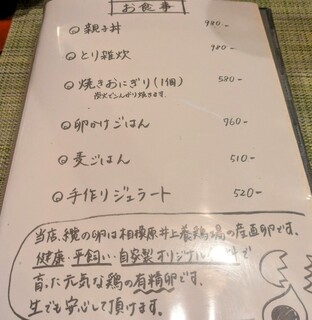 お食事
親子丼 980-
とり雑炊 980-
焼きおにぎり(1個) 580-
炭火でこんがり焼きます。
卵かけごはん 760-
麦ごはん 510-
手作りジェラート 520-
当店、鶏の卵は相模原井上養鶏場の産直卵です。
健康・平飼い・自家製オリジナル
育った元気な鶏の有精卵です。
生でも安心して頂けます。